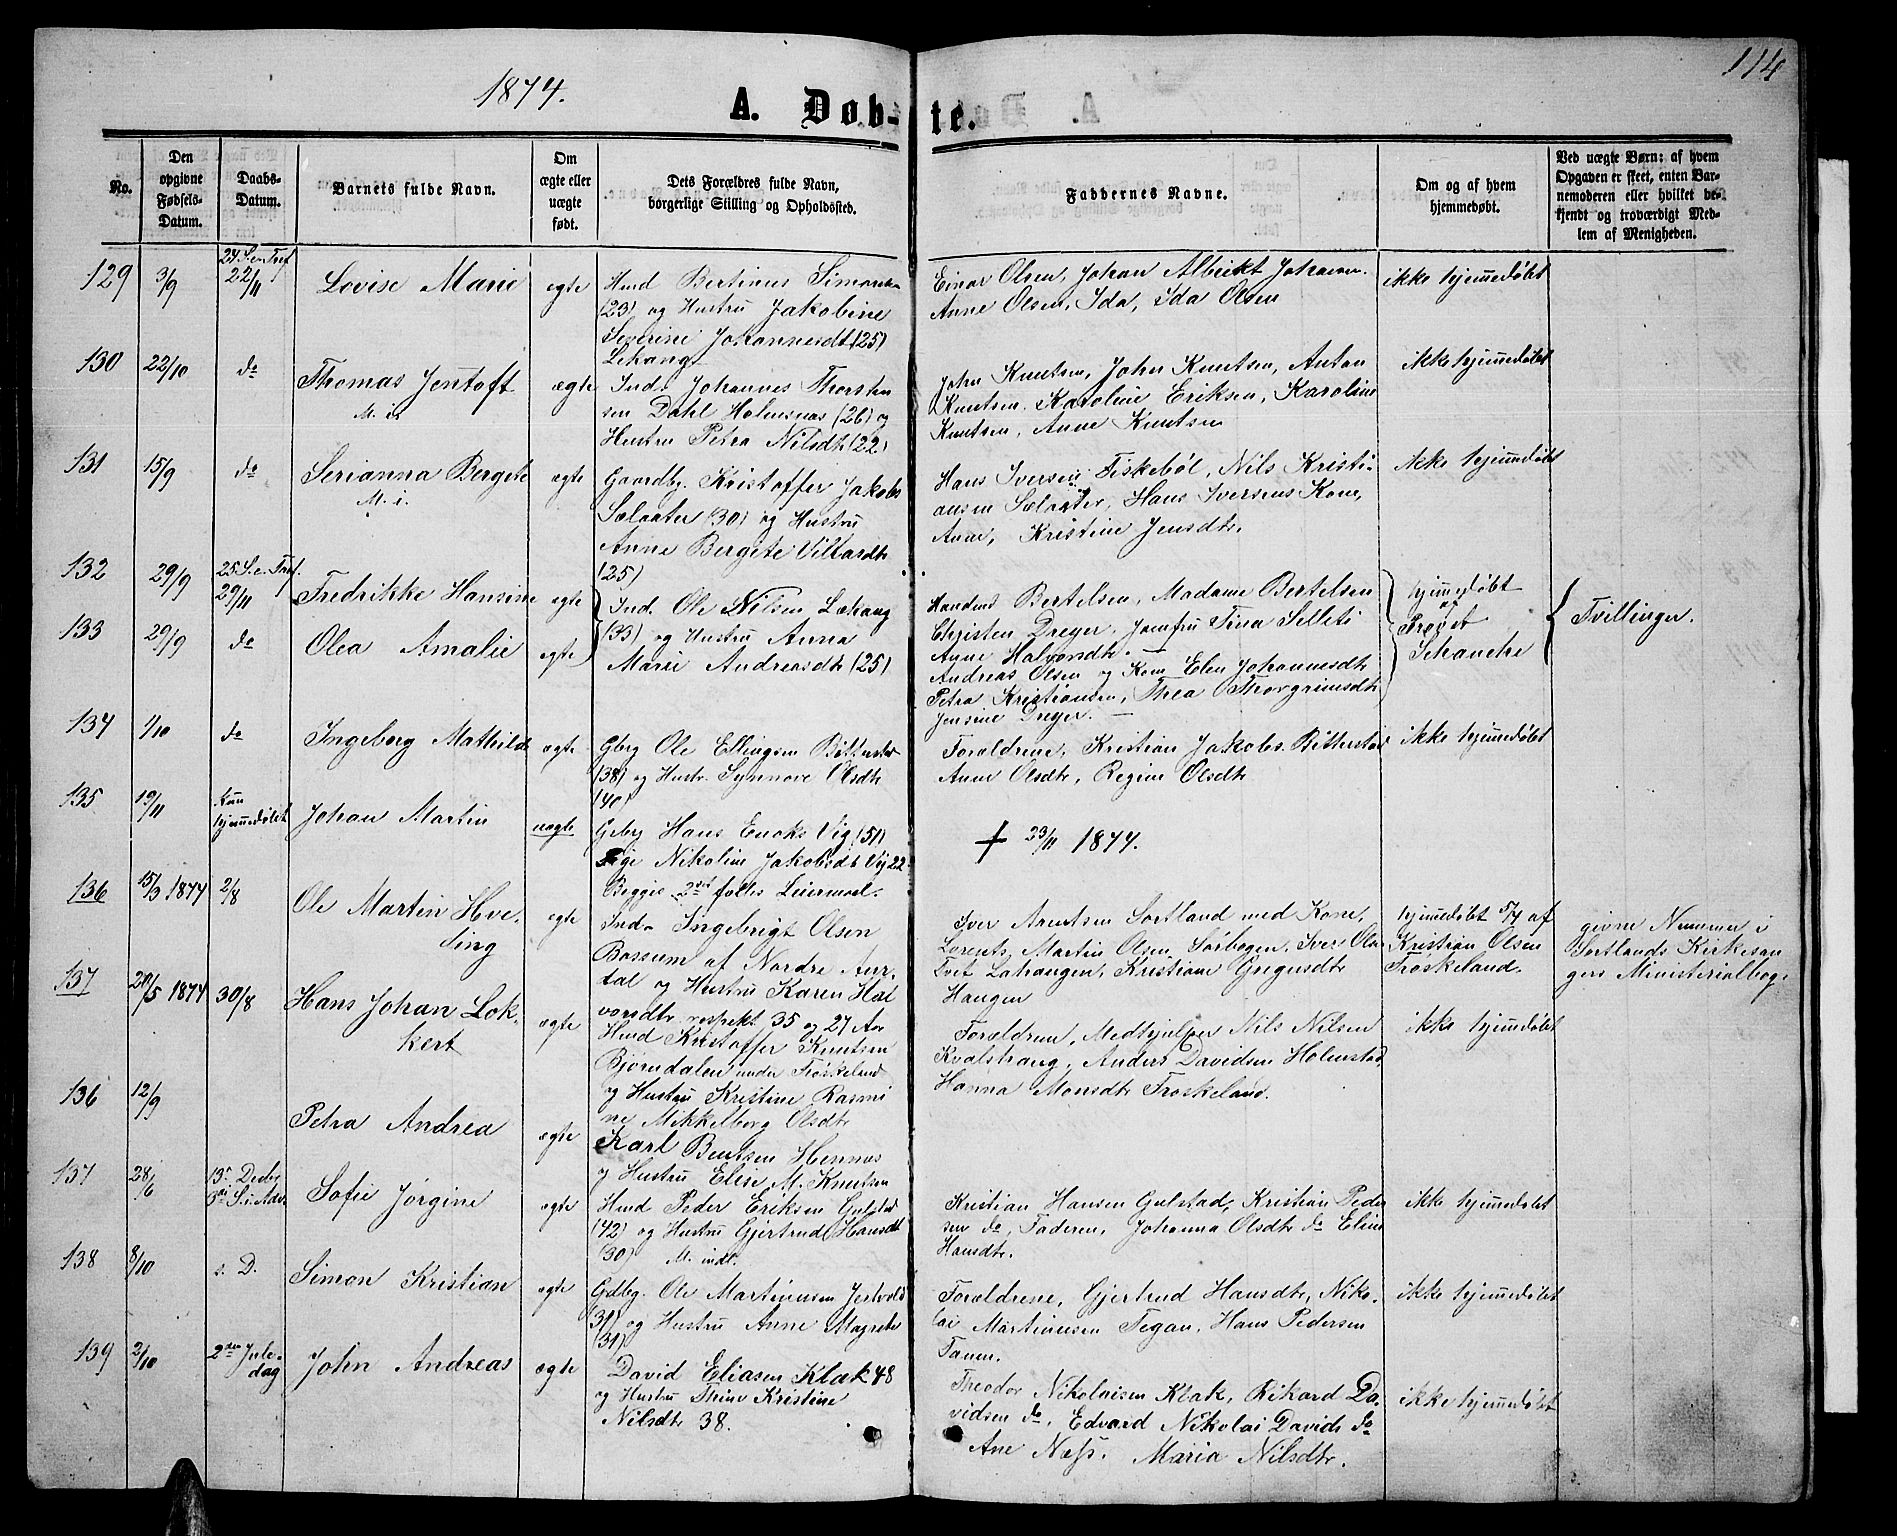 114
1874.
A. Døb-
te.
No.
Den opgivne Fødsels-Datum.
Daabs-Datum.
Barnets fulde Navn.
Om ægte eller uægte født.
Dets Forældres fulde Navn, borgerlige Stilling og Opholdssted.
Faddernes Navne.
Om og af hvem hjemmedøbt.
Ved uægte Børn: af hvem Opgaven er skeet, enten Barnemoderen eller hvilket bekjendt og troværdigt Medlem af Menigheden.
129 3/9 24. S. e. Tref. 22/11 Lovise Marie ægte
Hmd Bertinus Simons
(23) og Hustru Jakobine
Severine Johannesdt (25)
Lekang
Einar Olsen, Johan Albrikt Johansen.
Anne Olsen, Ida, Ida Olsen
ikke hjemmedøbt
130 22/10 do Thomas Jentoft ægte
M. i.
Ind. Johannes Thorsten
sen Dahl Holmsnæs (26) og
Hustru Petra Nilsdtr (22)
John Knutsen, John Knutsen, Anton
Knutsen. Karoline Eriksen, Karoline
Knutsen, Anne Knutsen
ikke hjemmedøbt
131 15/9 do Serianna Bergete ægte
M. i.
Gaardbr. Kristoffer Jakobs
Sælaater (30) og Hustru
Anne Bergete Villardtr
(25)
Hans Iversen Fiskebøl, Nils Kristi-
ansen Sælaater, Hans Iversens Kone,
Anne, Kristine Jensdtr.
ikke hjemmedøbt
132 29/9 25. S. e. Tref. 29/11 Fredrikke Hansine ægte
133 29/9 do Olea Amalie ægte
Ind. Ole Nilsen Lekang
(33) og Hustru Anna
Marie Andreasdtr (25)
Handms Bertelsen, Madame Bertelsen
Christen Dreyer, Jomfru Tina Selleti
Anne Halvordtr. —
Andreas Olsen og Kone Elen Johannesdtr
Petra Kristiansen, Thea Thorgrimsdtr
Jensine Dreyer. —
hjemmedøbt
af
Provst
Schanche
Tvillinger.
134 1/10 do Ingeborg Mathilde ægte
Gbrg Ole Ellingsen Bitterstad
(38) og Hustr. Synnove Olsdtr
(40)
Forældrene, Kristian Jakobs. Bitterstad
Anne Olsdtr, Regine Olsdtr
ikke hjemmedøbt
135 19/11 Kun hjemmedøbt Johan Martin uægte
Gbrg Hans Enoks Vig (51)
Pige Nikoline Jakobsdt Vig 22
Begges 2det fælles Leiermaal.
† 23/11 1874.
136 15/3 1874 2/8 Ole Martin Hve-
ding ægte
Ind. Ingebrigt Olsen
Bossum af Nordre Aur-
dal og Hustru Karen Hal
vorsdtr respekt. 35 og 27 Aar
Iver Arentsen Sortland med Kone,
Lorents Martin Olsen Sørbogen, Iver Olsen
Tvet Lahaugen, Kristiane Gregusdtr
Haugen
hjemmedøbt 5/4 af
Kristian Olsen
Frøskeland.
givne Nummer i
Sortlands Kirkesan
gers Ministerialbog
137 20/5 1874 30/8 Hans Johan Lok-
kert ægte
Hmd Kristoffer Knutsen
Bjørndalen under Frøskeland
og Hustru Kristine Rasmi
ne Mikkelborg Olsdtr
Forældrene, Medhjælper Nils Nilsen
Kvalstrang, Anders Davidsen Holmstad,
Hanna Monsdtr Frøskeland.
ikke hjemmedøbt
136 12/9 Petra Andrea ægte
Karl Bentsen Hennes
og Hustru Elise M. Knutsen
137 28/6 13de Decbr 3de S. i Adv. Sofie Jørgine ægte
Hmd Peder Eriksen Gulstad
(42) og Hustru Gjertrud Hansdt
(30) M. indt.
Kristian Hansen Gulstad, Kristian Peder
sen do, Faderen, Johanna Olsdtr do Eline
Hansdtr.
ikke hjemmedøbt
138 8/10 s. D. Simon Kristian ægte
Gdbg. Ole Martinusen Jertvold
31) og Hustru Anne Magrete
(31)
Forældrene, Gjertrud Hansdtr, Niko-
lai Martinusen Fegan, Hans Pedersen
Faner.
ikke hjemmedøbt
139 2/10 2den Juledag John Andreas ægte
David Eliasen Klak 48
og Hustru Thine Kristine
Nilsdtr 38.
Theodor Nikolaisen Klak, Rikard Da-
vidsen do, Edvard Nikolai Davids do
Ane Næss. Maria Nilsdtr.
ikke hjemmedøbt